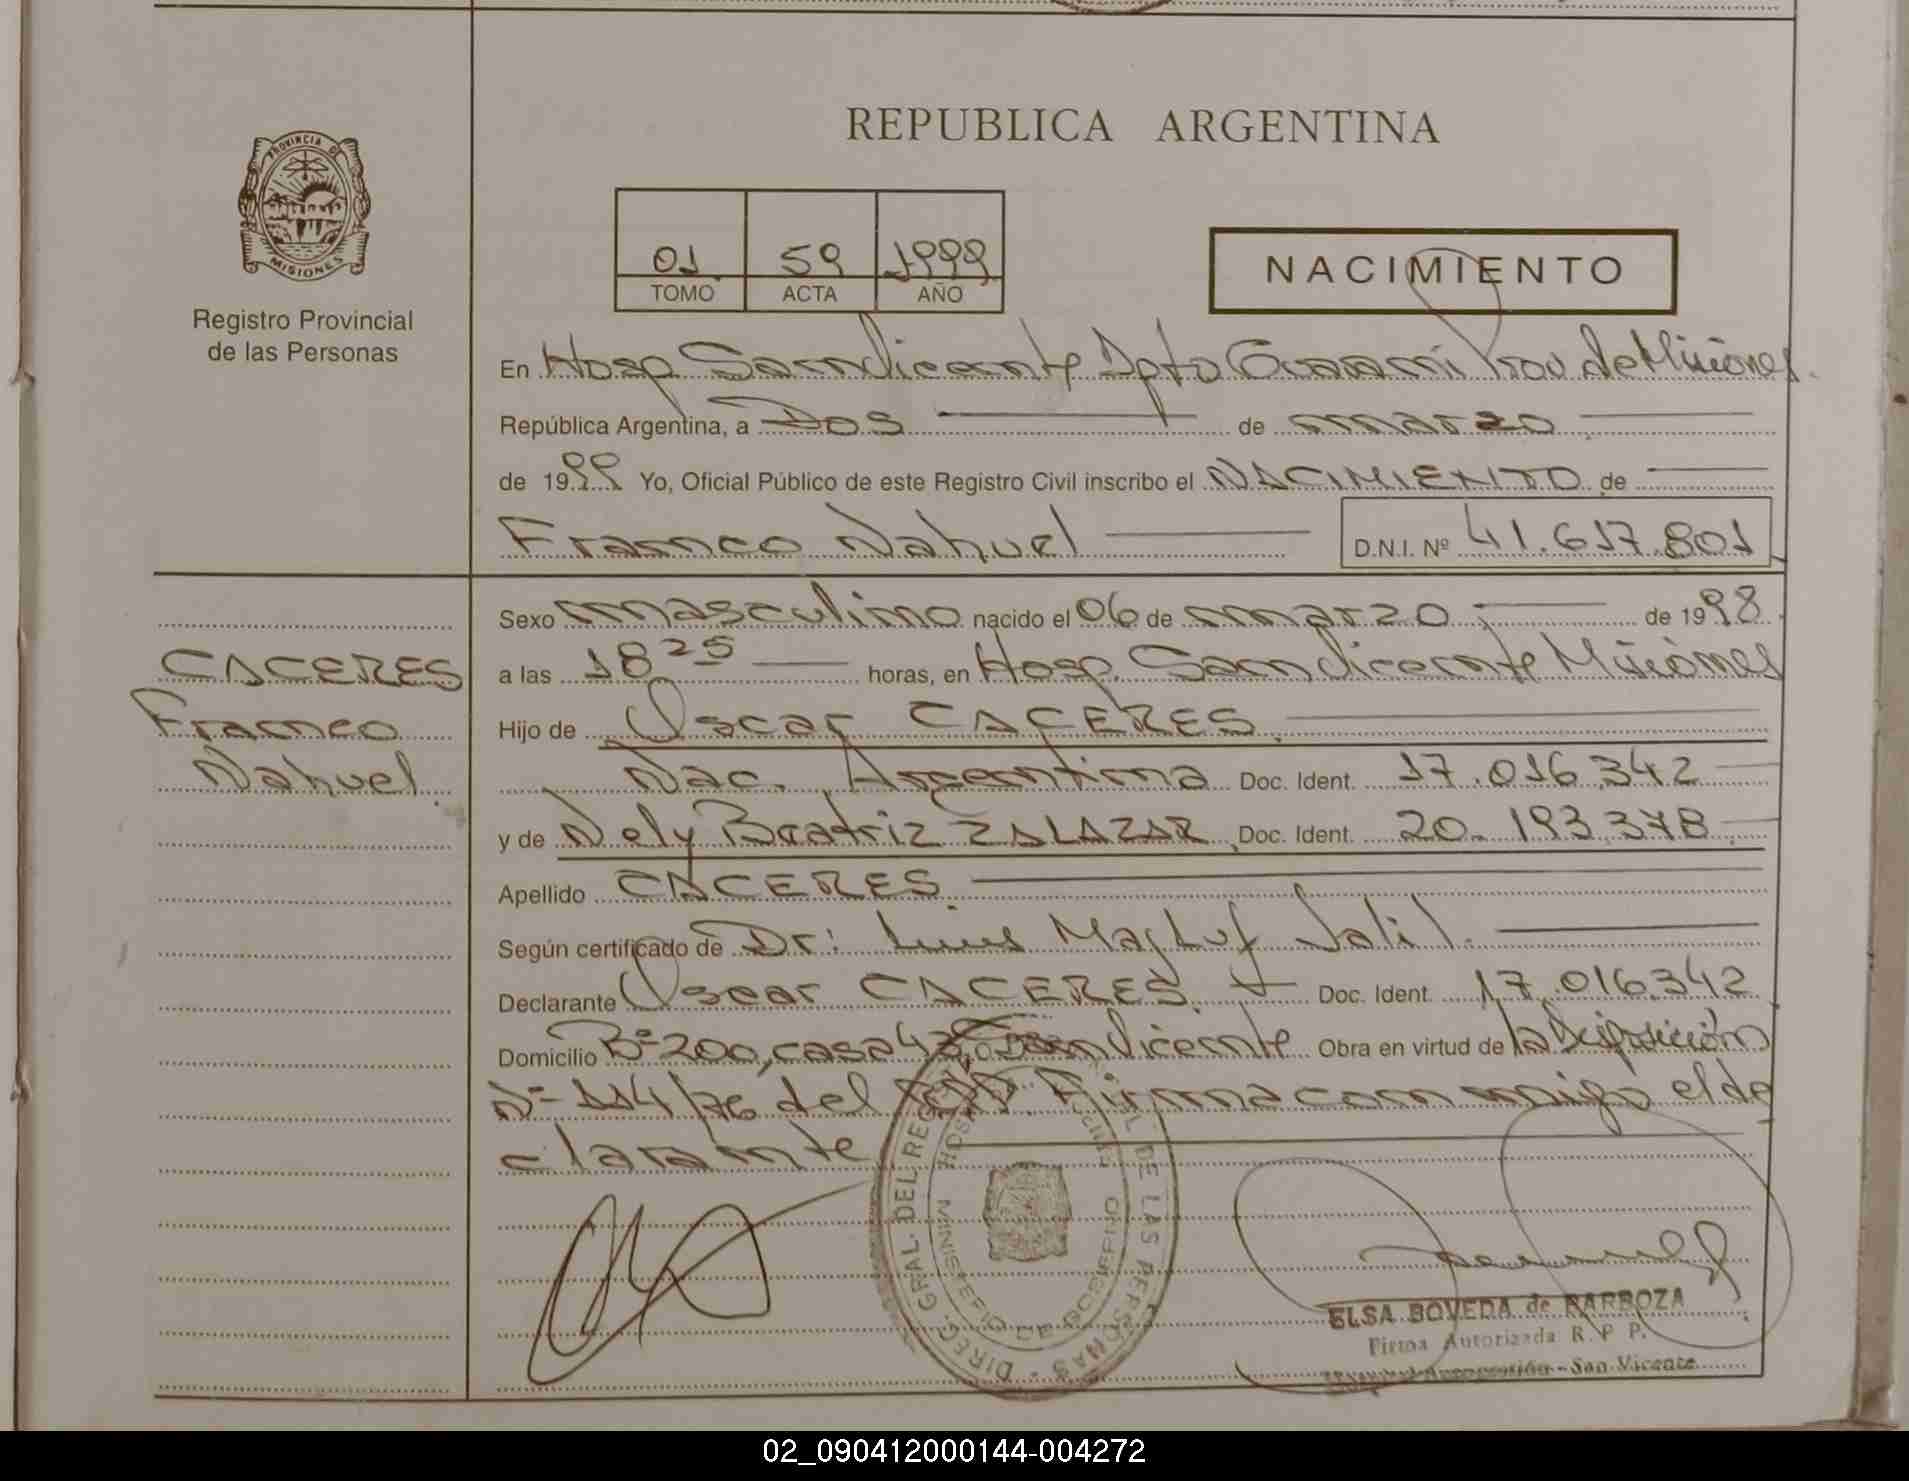 REPUBLICA ARGENTINA
PROVINCIA DE
MISIONES
Registro Provincial
de las Personas
01 59 1999
TOMO ACTA AÑO
NACIMIENTO
En Hosp San Vicente Dpto Guaraní Prov de Misiones.
República Argentina, a Dos de marzo
de 1999 Yo, Oficial Público de este Registro Civil inscribo el NACIMIENTO de
Franco Nahuel D.N.I. Nº 41.617.801
CACERES
Franco
Nahuel.
Sexo masculino nacido el 06 de marzo de 1998
a las 18 25 horas, en Hosp. San Vicente Misiones
Hijo de Oscar CACERES
Nac. Argentina Doc. Ident. 17.016.342
y de Nely Beatriz ZALAZAR Doc. Ident. 20.193.378
Apellido CACERES
Según certificado de Dr: Luis Jalil.
Declarante Oscar CACERES Doc. Ident. 17.016.342
Domicilio Bº 200, casa San Vicente Obra en virtud de la Disposición
Nº 114/76 del Firma conmigo el de
clarante
DIREC. GRAL. DEL REG DE LAS PERSONAS
MINISTERIO DE GOBIERNO
ELSA BOVEDA de BARBOZA
Firma Autorizada R. P P.
San Vicente
02_090412000144-004272